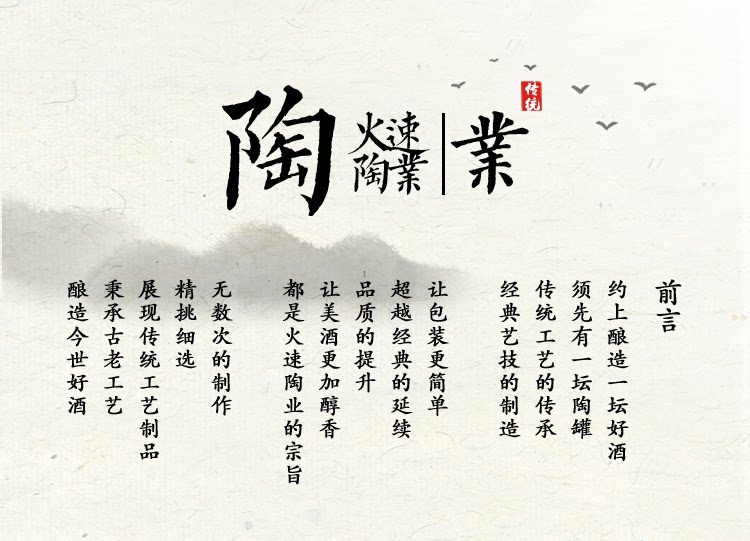 陶
火速
陶業
業
传统
前言
约上酿造一坛好酒
须先有一坛陶罐
传统工艺的传承
经典艺技的制造
让包装更简单
超越经典的延续
品质的提升
让美酒更加醇香
都是火速陶业的宗旨
无数次的制作
精挑细选
展现传统工艺制品
秉承古老工艺
酿造今世好酒